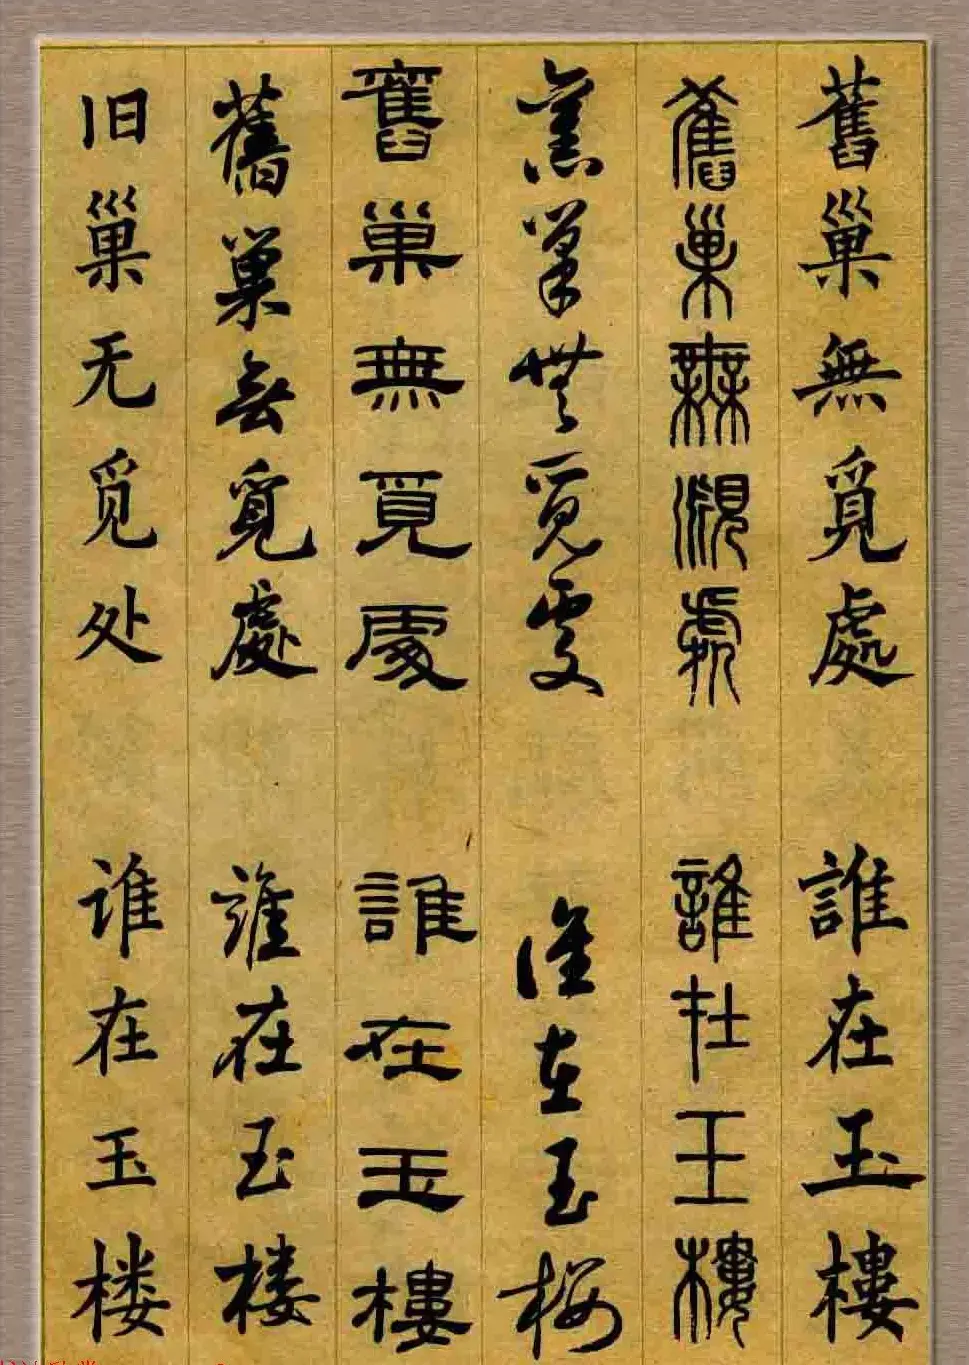 舊巢無覓處 誰在玉樓
舊巢無覓處 誰在玉樓
舊巢無覓處 誰在玉樓
舊巢無覓處 誰在玉樓
舊巢無覓處 誰在玉楼
旧巢无觅处 谁在玉楼